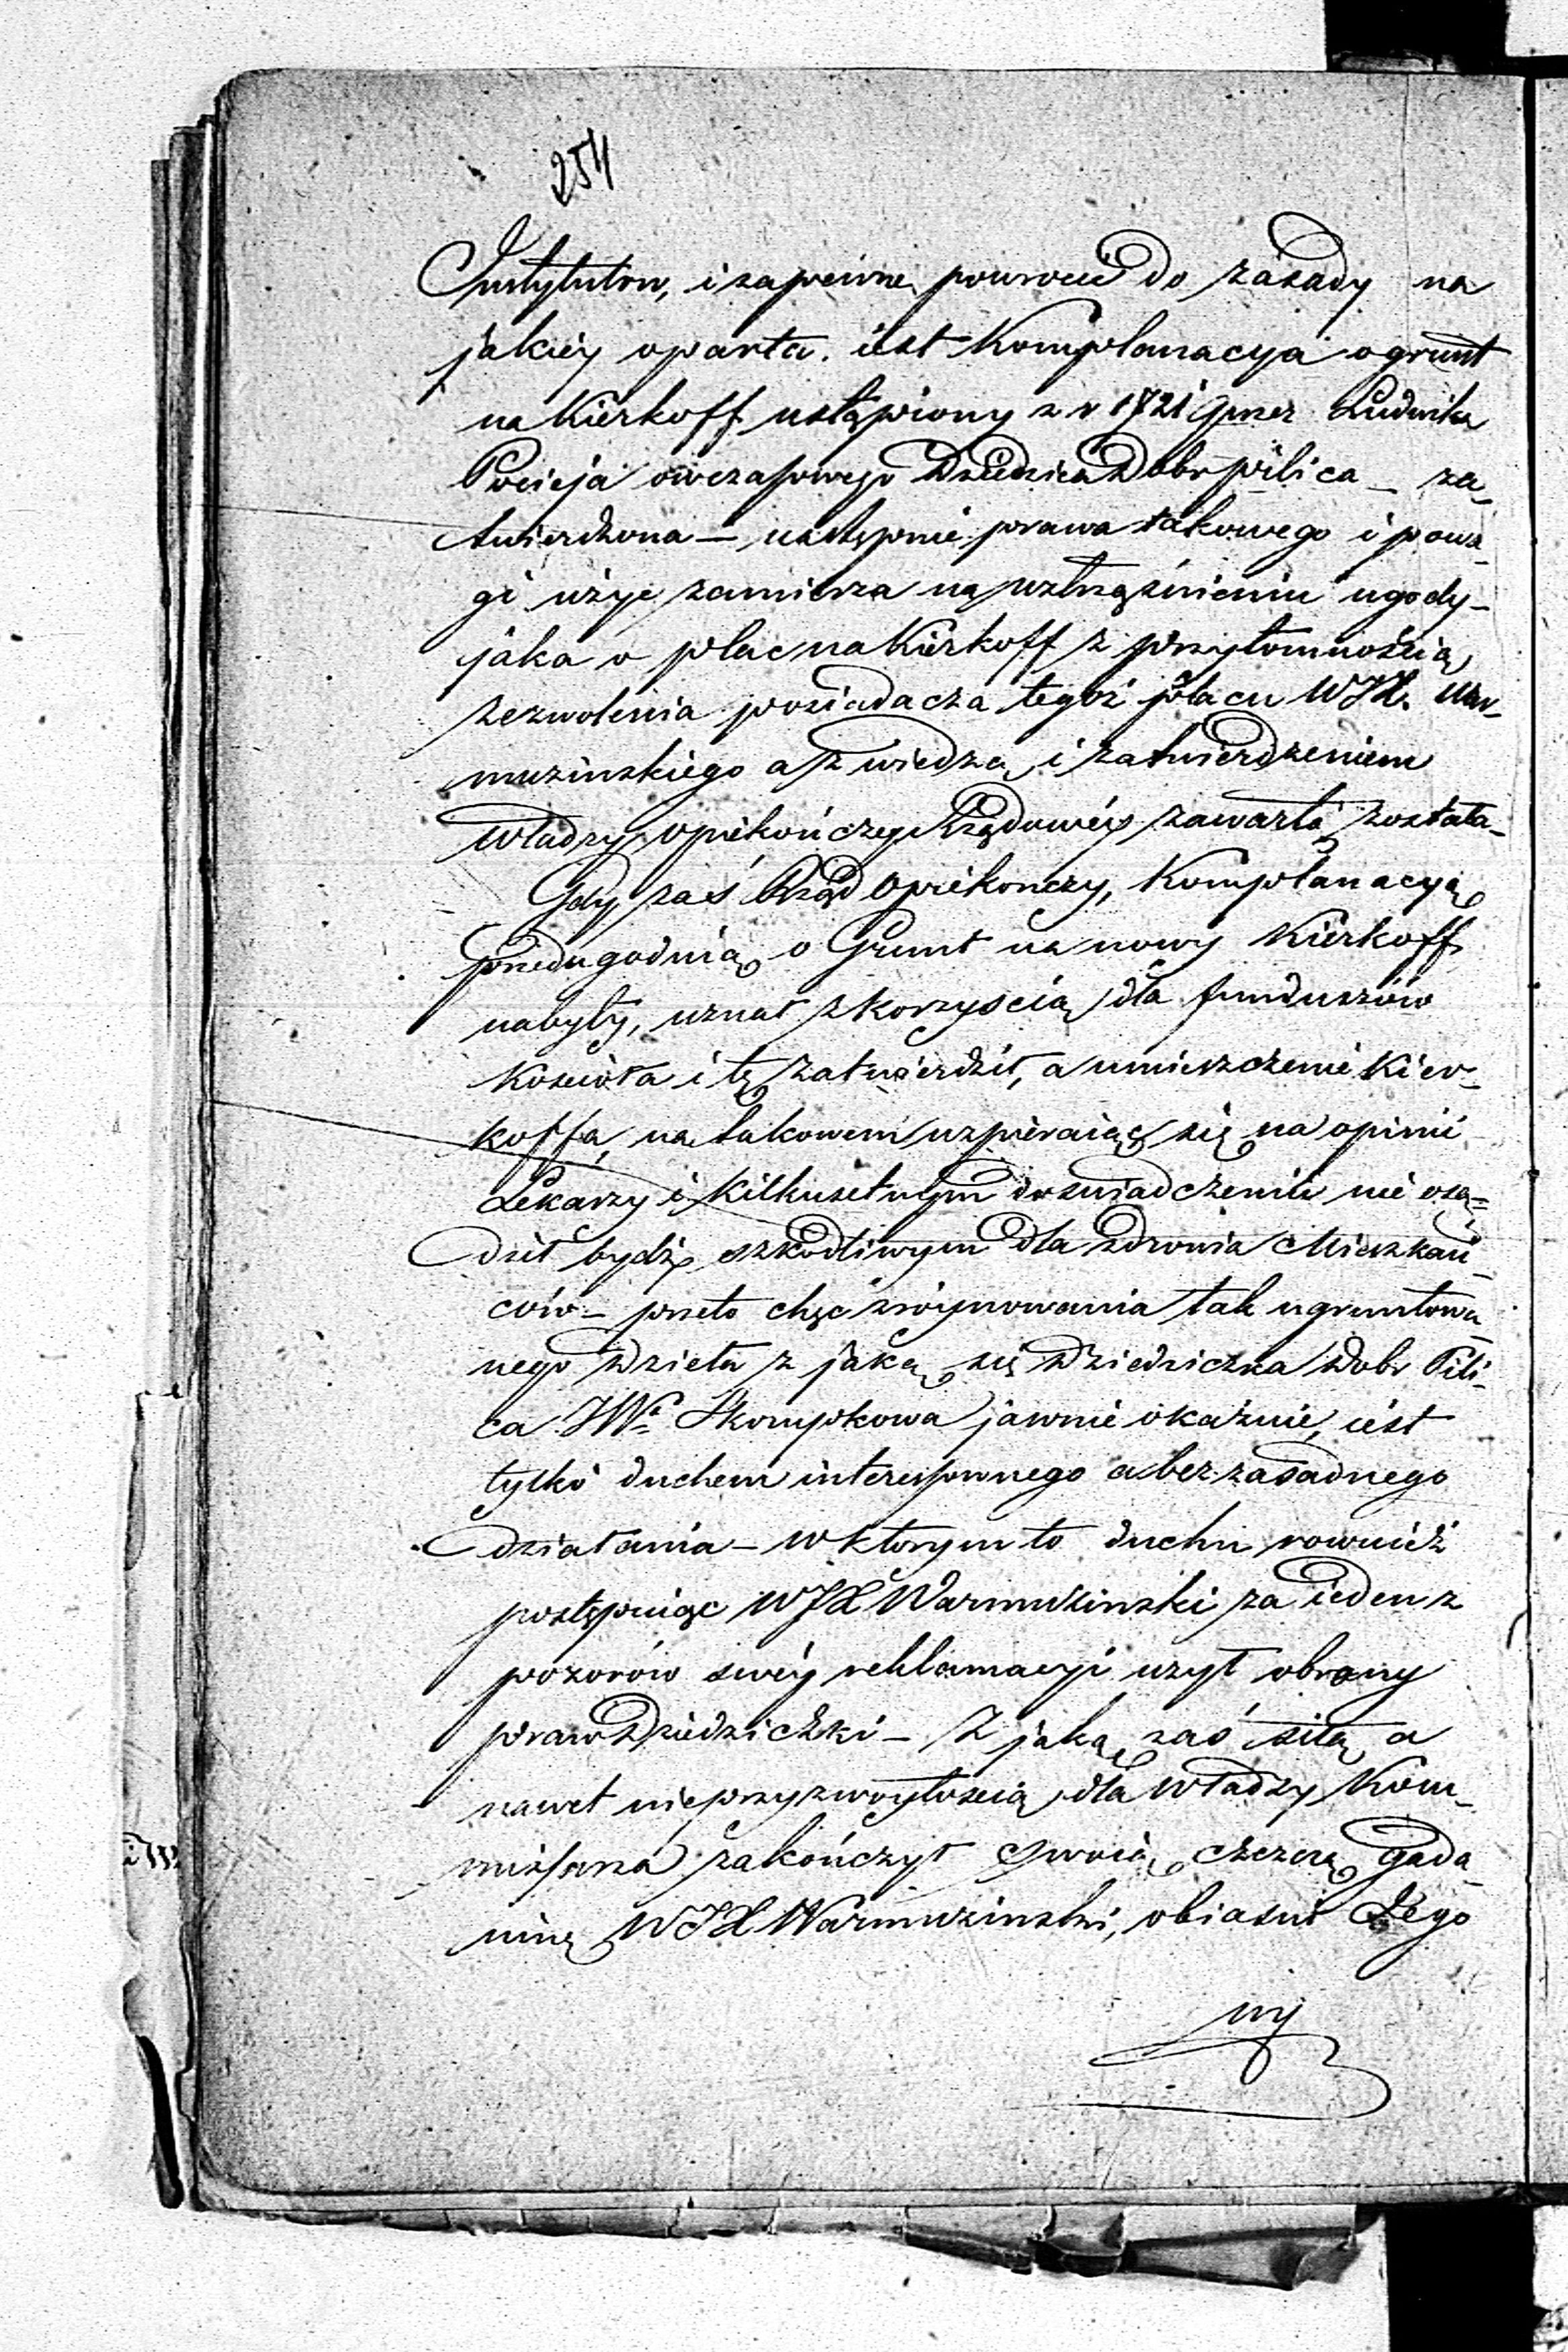 254
Instytutow, i zapewne powrocić do zasady na
jakiéy oparta iest Komplanacya o grunt
na Kierkoff ustąpiony z r 1721 przez Ludwika
Pocieja owczasowego Dziedzica Dobr Pilica – za„
twierdzona – następnie prawa takowego i powa„
gi użyc zamierza na wztrząśnieniu ugody –
jaka o plac na Kierkoff z przytomnością
zezwolenia posiadacza tegoż placu WJX. War„
muzinskiego a z wiedzą i zatwierdzeniem
Władzy opiekończey Rządowéy zawartą została –
Gdy zaś Rząd Opiekonczy, Komplanacyą
przedugodnią o Grunt na nowy Kierkoff
nabyty, uznał z korzyscią dla funduszów
Kosciola i tę zatwierdził, a umieszczenie Kier„
koffa, na takowem wzpieraiąc się na opinii
Lekarzy i Kilkusetnym doswiadczeniu nie osą„
dził bydź szkodliwym dla zdrowia Mieszkań„
ców – przeto chęc zróynowania tak ugruntowa„
nego dzieła z jaką się Dziedziczka Dobr Pili„
ca JWa Skompkowa jawnie okaźuie, iest
tylko duchem interessownego a bezzasadnego
działania – w ktorym to duchu rownież
postępuiąc WJX Warmuzinski za ieden z
pozorów swéy reklamacyi uzył obrony
praw Dziedziczki – Z jaką zaś siłą a
nawet nieprzyzwoytoscią dla Władzy Kom„
missarza zakończył swoią czczą gada„
ninę WJX Warmuzinski, obiasni Jego